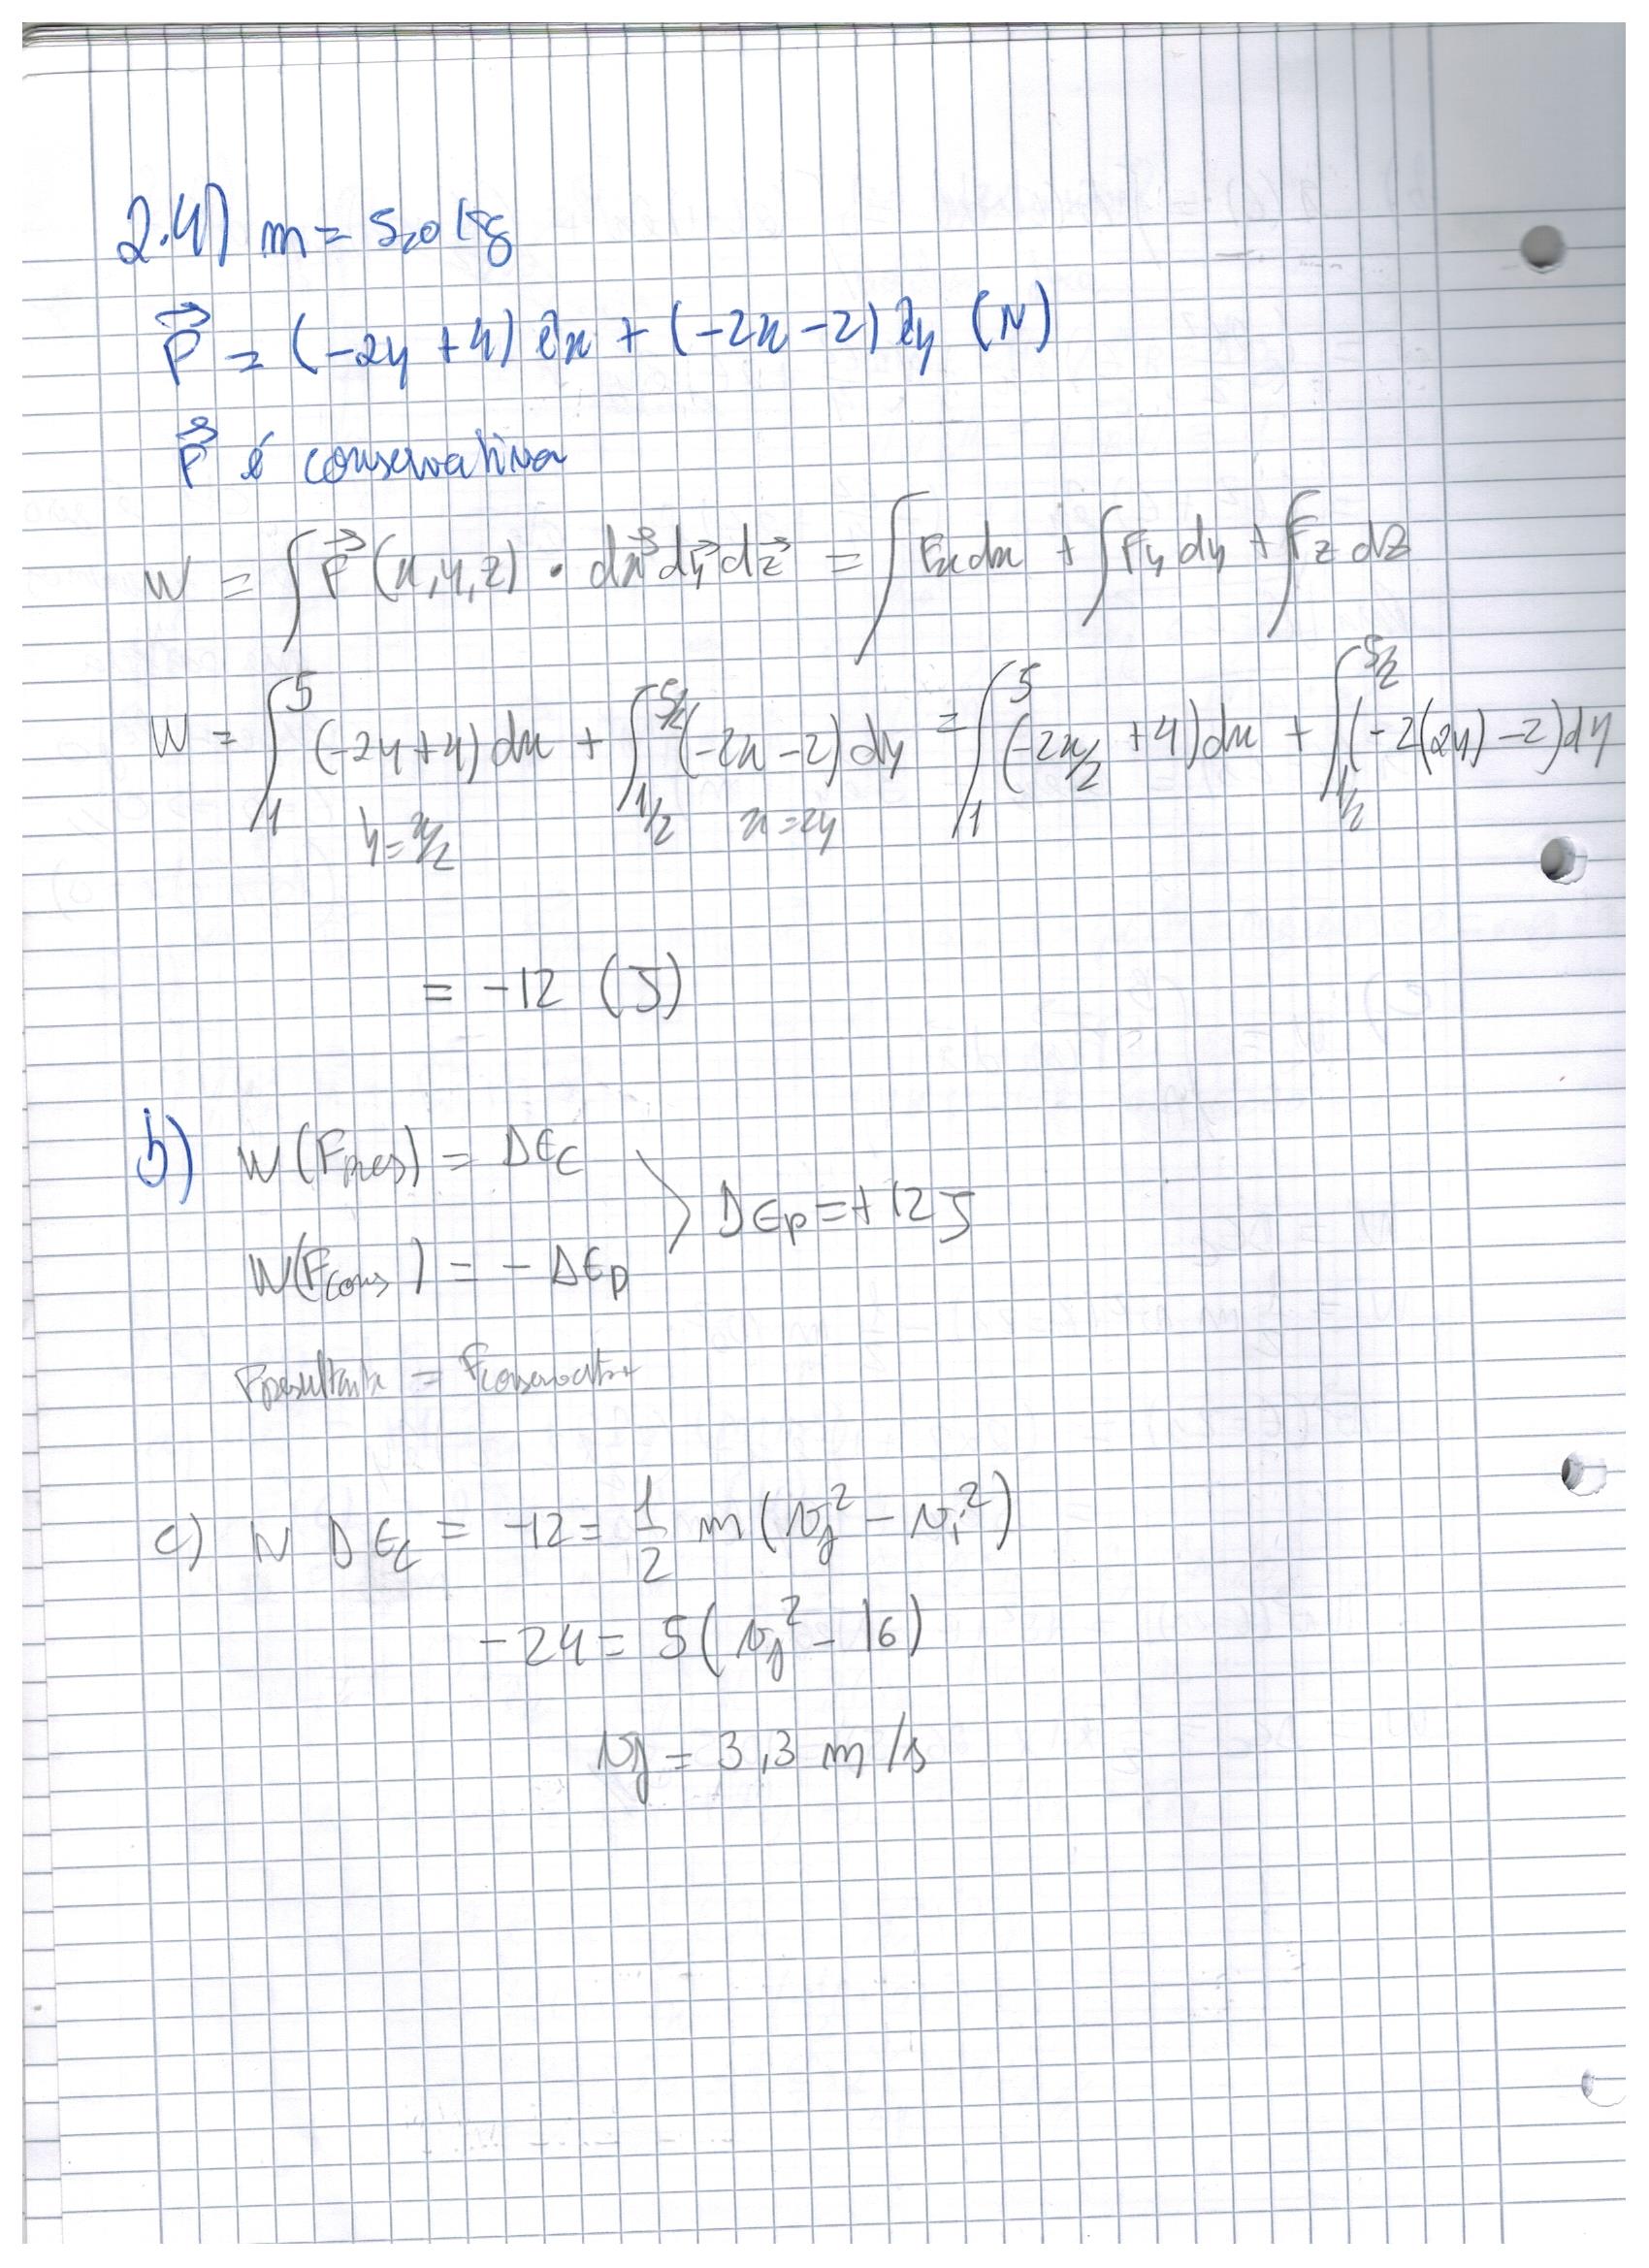 2.4) m = 5,0 kg
F⃗ = (-2y + 4) êx + (-2x - 2) êy (N)
F⃗ é conservativa
W = ∫ F⃗ (x,y,z) • dx⃗ dy⃗ dz⃗ = ∫ Fx dx + ∫ Fy dy + ∫ Fz dz
W = ∫₁⁵ (-2y+4) dx + ∫_{1/2}^{5/2} (-2x-2) dy = ∫₁⁵ (-2x/2 + 4) dx + ∫_{1/2}^{5/2} (-2(2y) - 2) dy
y = x/2 x = 2y
= -12 (J)
b) W (Fres) = ΔEc
ΔEp = +12 J
W(Fcons) = - ΔEp
Fresultante = Fconservativa
c) W ΔEc = -12 = 1/2 m (vf² - vi²)
-24 = 5 (vf² - 16)
vf = 3,3 m/s